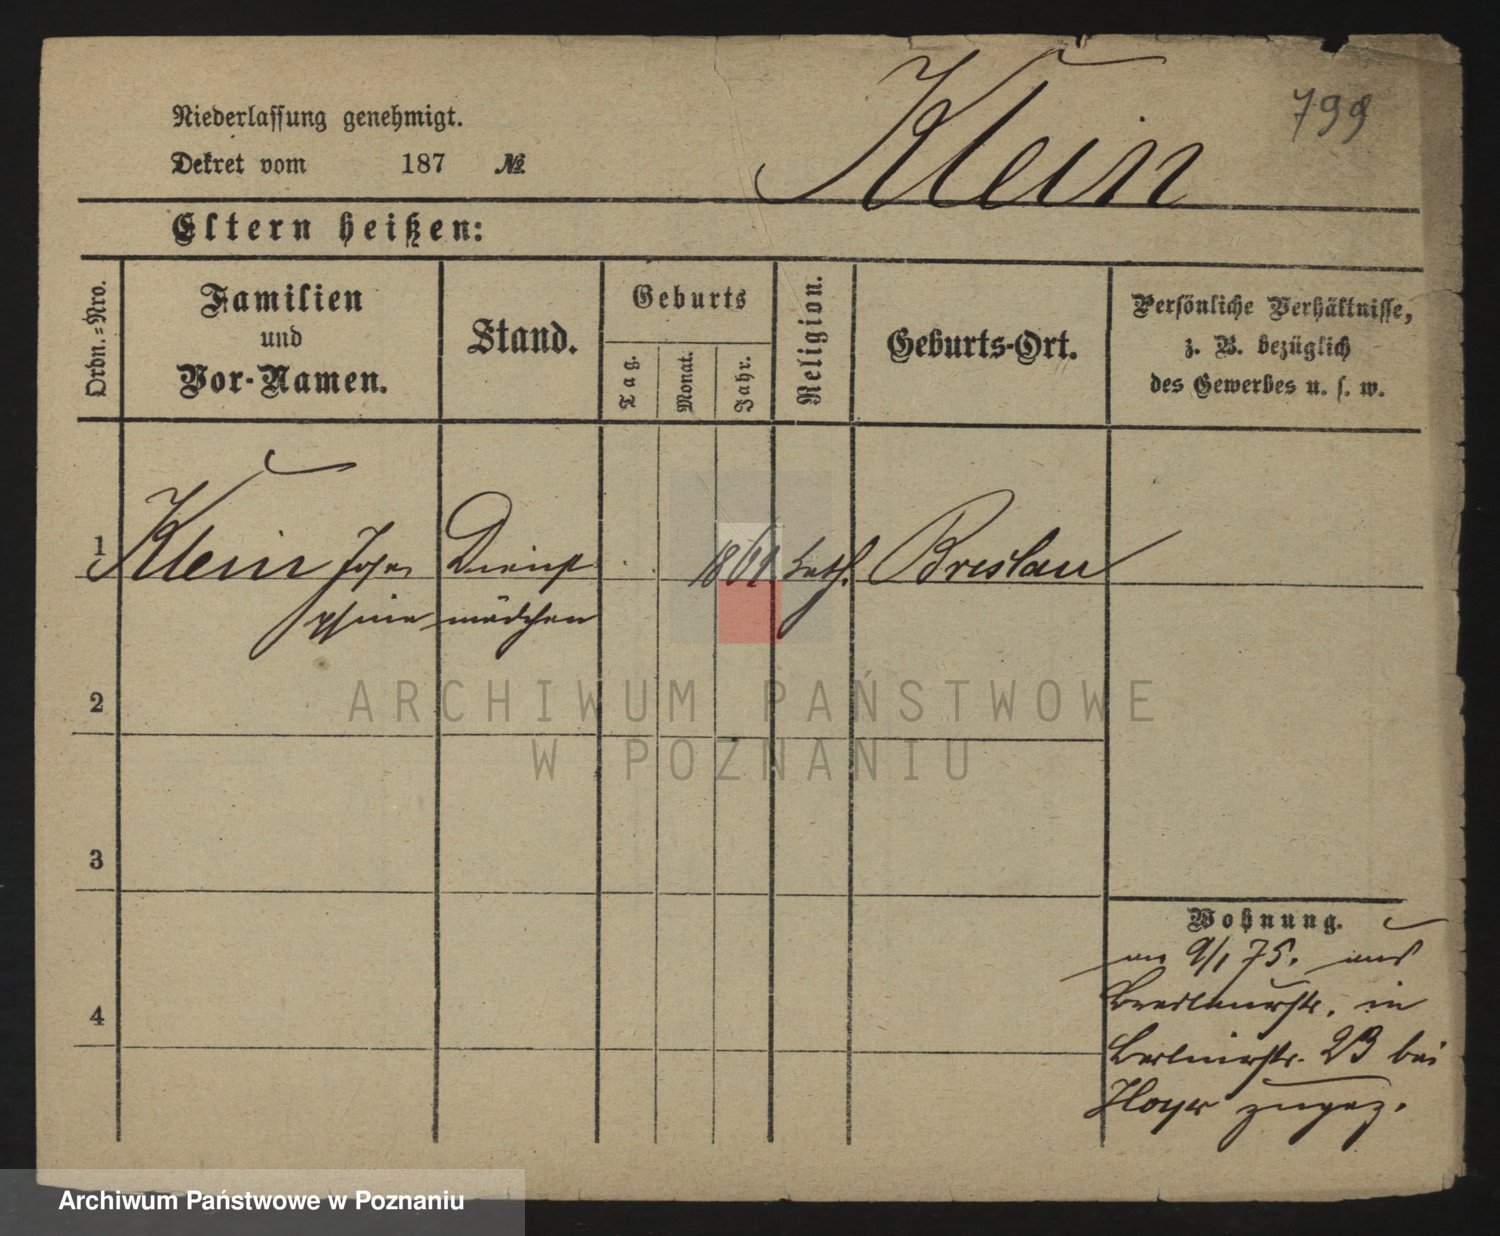 Klein
799
Niederlassung genehmigt.
Dekret vom 187 №
Eltern heißen:
Ordn.=Nro.
Familien
und
Vor-Namen.
Stand.
Geburts
Tag.
Monat.
Jahr.
Religion.
Geburts-Ort.
Persönliche Verhältnisse,
z. B. bezüglich
des Gewerbes u. s. w.
1 Klein Jose Dienst kath. Breslau
phine mädchen
2
ARCHIWUM PAŃSTWOWE
W POZNANIU
3
Wohnung.
am 9/1 75. aus
Breslauerstr. in
4
Berlinerstr. 23 bei
Hoyer zugez.
Archiwum Państwowe w Poznaniu